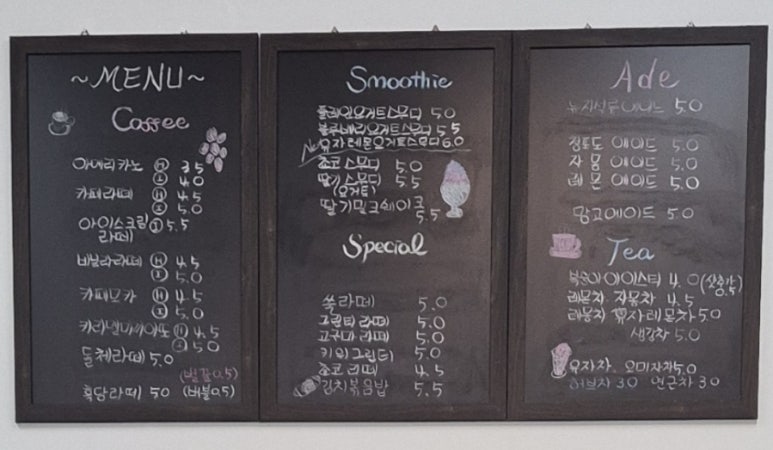 ~MENU~
Coffee
아메리카노 Ⓗ 3.5
Ⓘ 4.0
카페라떼 Ⓗ 4.5
Ⓘ 5.0
아이스크림 Ⓘ 5.5
라떼
바닐라라떼 Ⓗ 4.5
Ⓘ 5.0
카페모카 Ⓗ 4.5
Ⓘ 5.0
Ⓗ 4.5
Ⓘ 5.0
돌체라떼 5.0
흑당라떼 5.0 (버블0.5)
Smoothie
플레인요거트스무디 5.0
블루베리요거트스무디 5.5
New 유자레몬요거트스무디 6.0
초코스무디 5.0
딸기스무디 5.5
(요거트)
딸기밀크쉐이크
5.5
Special
쑥라떼 5.0
그린티라떼 5.0
고구마라떼 5.0
5.0
초코라떼 4.5
김치볶음밥 5.5
Ade
5.0
청포도 에이드 5.0
자몽 에이드 5.0
레몬 에이드 5.0
망고에이드 5.0
Tea
복숭아아이스티 4.0 (샷추가
0.5)
레몬차 자몽차 4.5
유자레몬차 5.0
생강차 5.0
유자차. 오미자차 5.0
허브차 3.0 연근차 3.0